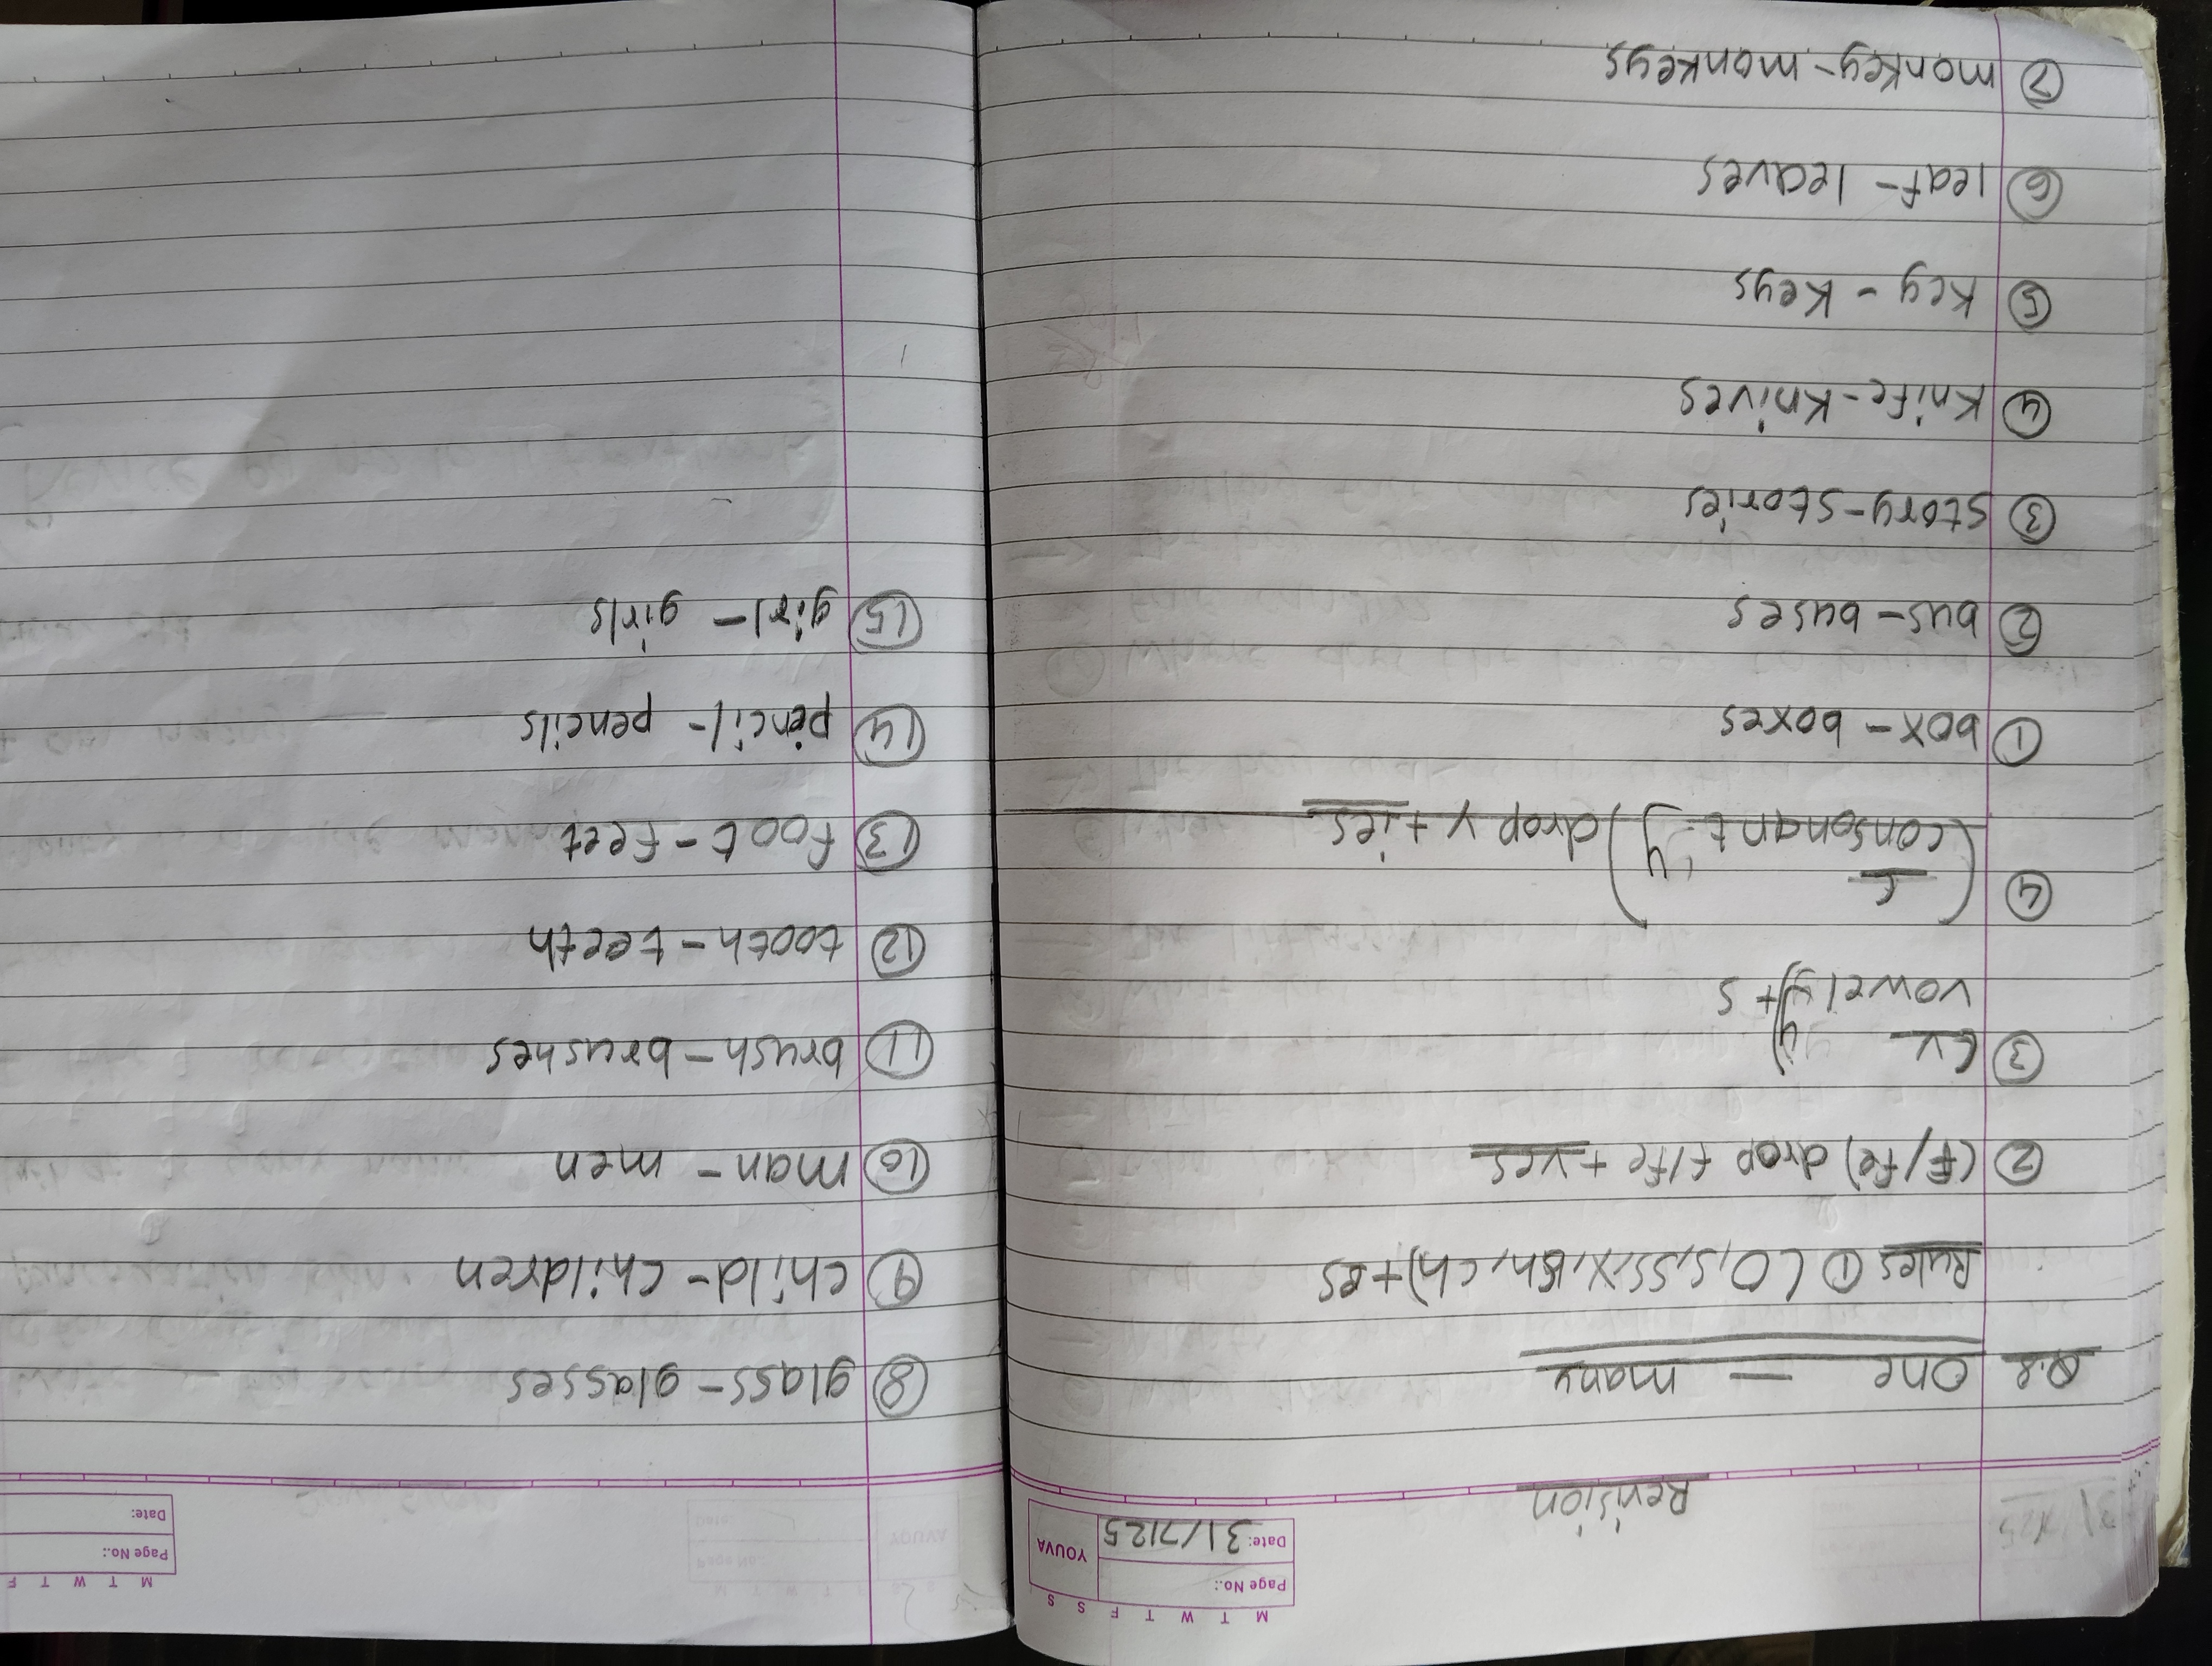 M T W T F S S
Page No.:
Date: 31/7/25
YOUVA
Revision
Q.2 One — many
Rules ① (O,S,SS,X,Sh,Ch)+es
② (F/Fe) drop f/fe + ves
③ vowel y)+ s
④ (consonant y) drop y + ies
① box - boxes
② bus - buses
③ story - stories
④ Knife - Knives
⑤ Key - Keys
⑥ leaf - leaves
⑦ monkey - monkeys
M T W T F
Page No.:
Date:
⑧ glass - glasses
⑨ child - children
⑩ man - men
⑪ brush - brushes
⑫ tooth - teeth
⑬ foot - feet
⑭ pencil - pencils
⑮ girl - girls